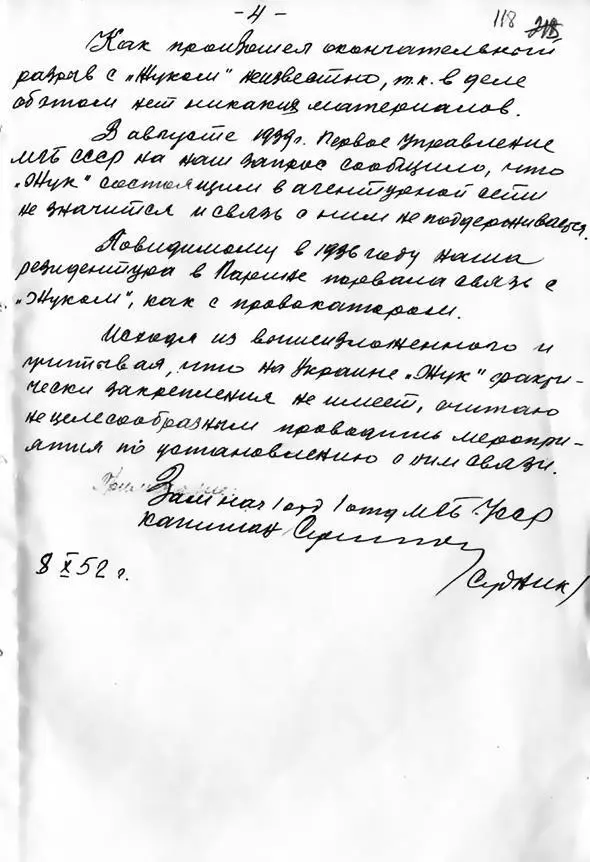 - 4 -
118 218
Как произошел окончательный
разрыв с „Жуком" неизвестно, т.к. в деле
об этом нет никаких материалов.
В августе 1939 г. Первое Управление
МГБ СССР на наш запрос сообщило, что
„Жук" состоящим в агентурной сети
не значится и связь с ним не поддерживается.
Повидимому в 1936 году наша
резидентура в Париже порвала связь с
„Жуком", как с провокатором.
Исходя из вышеизложенного и
учитывая, что на Украине „Жук" факти-
чески закрепления не имеет, считаю
нецелесообразным проводить меропри-
ятия по установлению с ним связи.
Зам нач 1 отд 1 отд МГБ УССР
капитан
/Судник/
8 X 52 г.